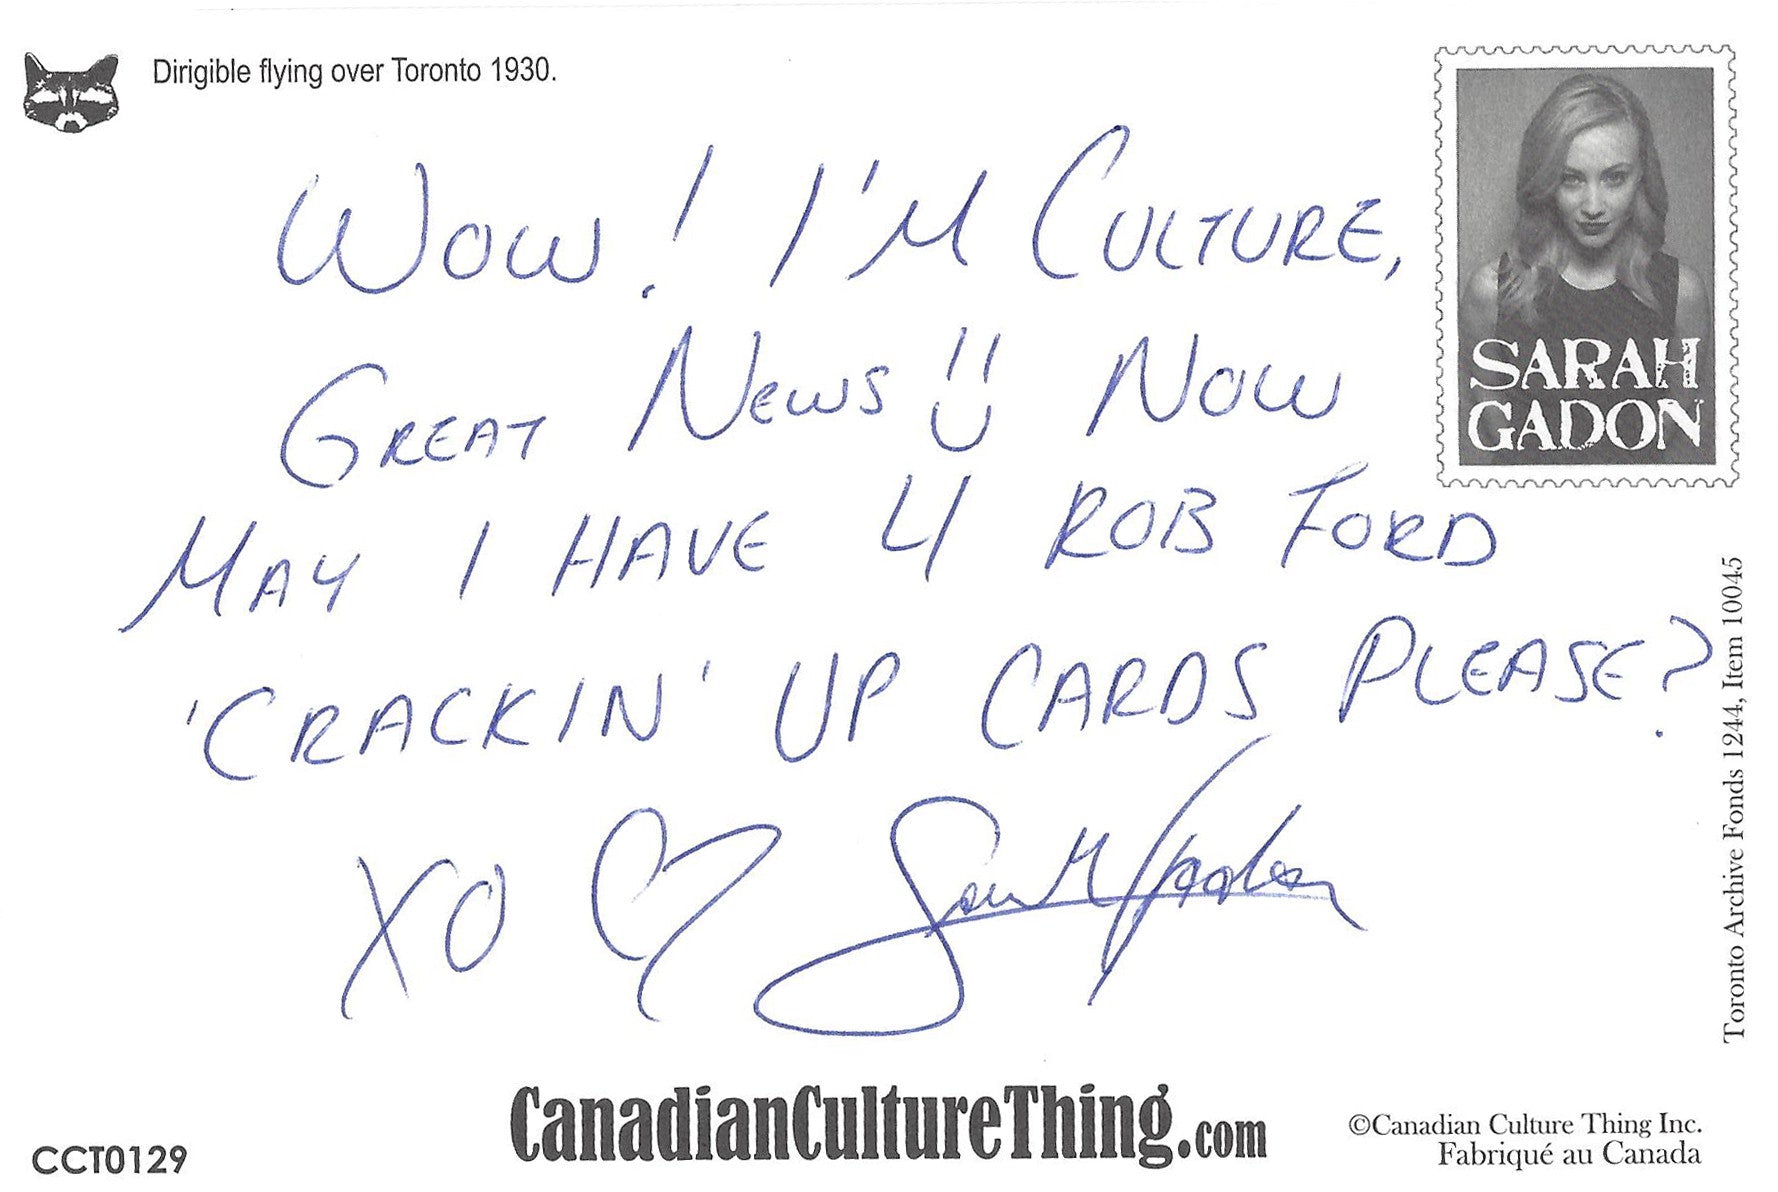 Dirigible flying over Toronto 1930.
WOW! I'M CULTURE,
GREAT NEWS!! NOW
MAY I HAVE 4 ROB FORD
'CRACKIN' UP CARDS PLEASE?
XO ♡ Sarah Gadon
SARAH
GADON
Toronto Archive Fonds 1244, Item 10045
CCT0129
CanadianCultureThing.com
©Canadian Culture Thing Inc.
Fabriqué au Canada